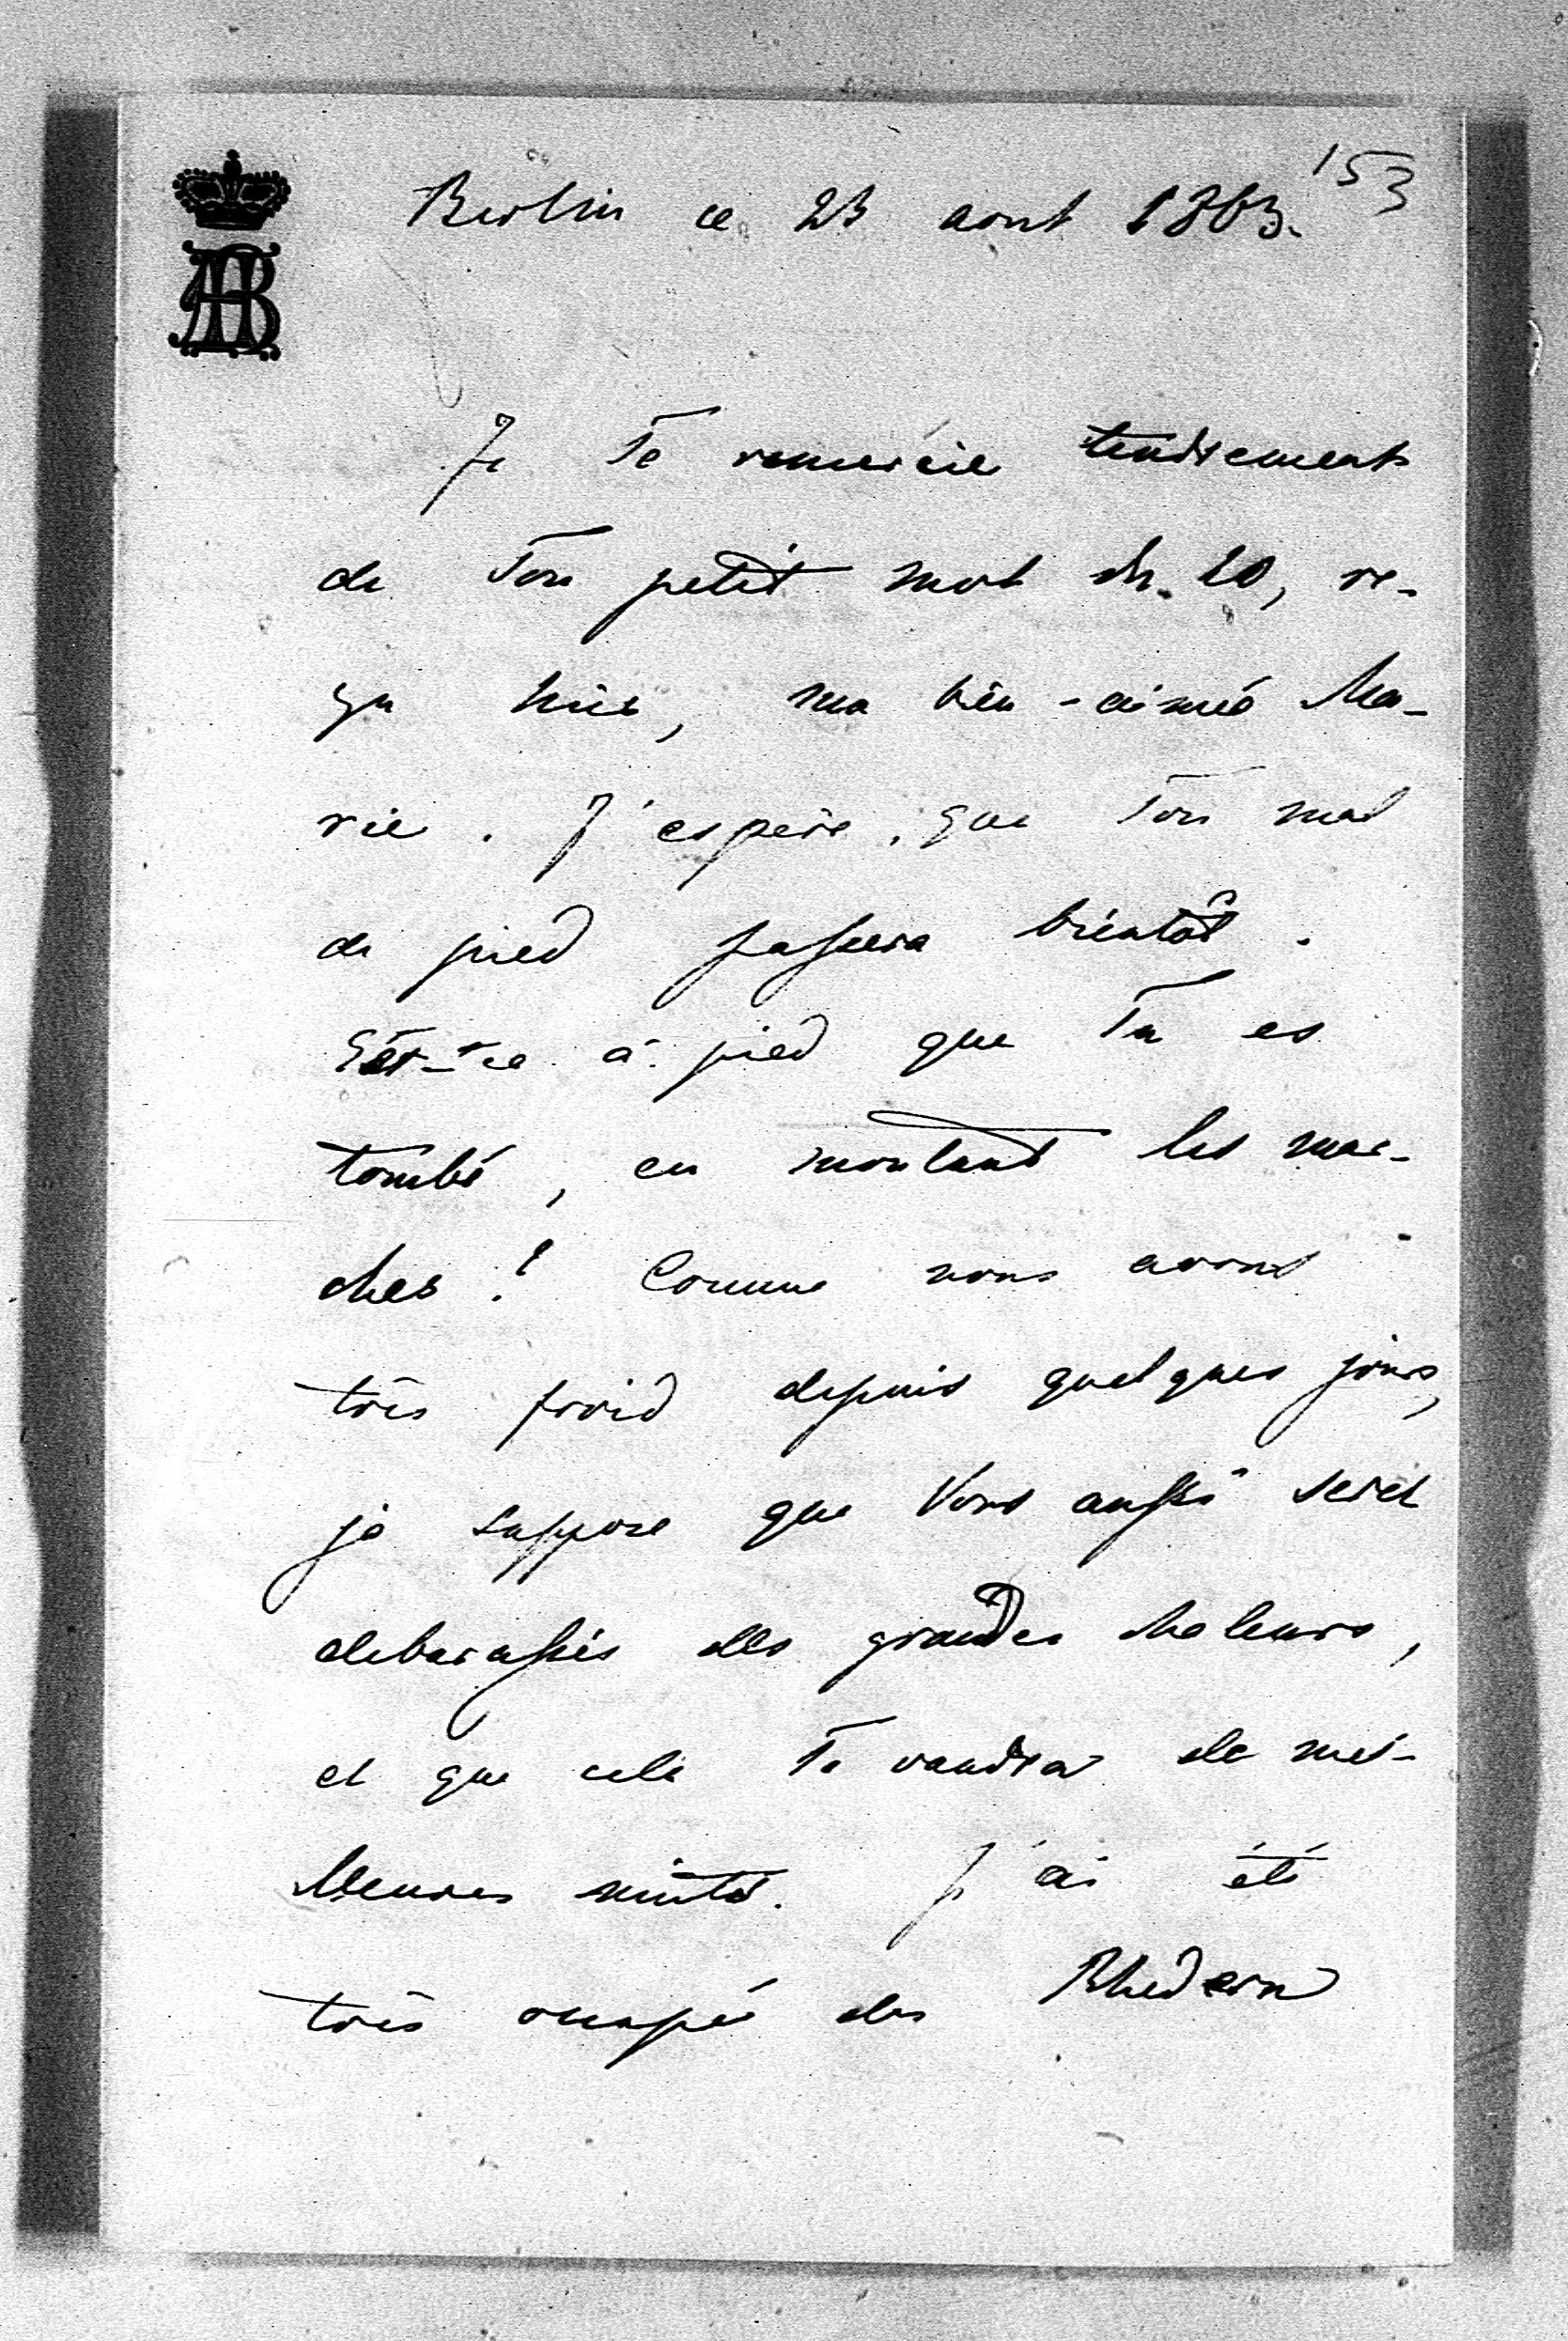 153
Berlin ce 23 aout 1863.
AB
Je Te remercie tendrement
de Ton petit mot du 20, re-
çu hier, ma bien-aimée Ma-
rie. J'espère, que Ton mal
de pied passera bientôt.
Est-ce à pied que Tu es
tombé, en montant les mar-
ches? Comme nous avons
très froid depuis quelques jours,
je suppose que Vous aussi serez
debarassés des grandes chaleurs,
et que cela Te vaudra de meil-
leures nuits. J'ai été
très occupé des Rhedern